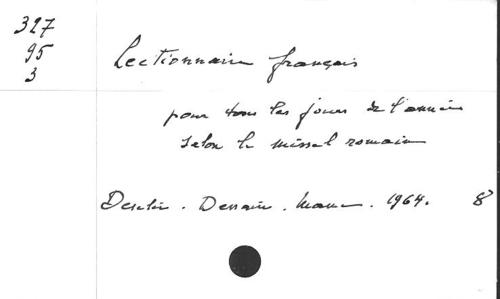 327
95
3
Lectionnaire français
pour tous les jours de l'année
selon le missel romain
Desclée. Dessain. Mame. 1964. 8°